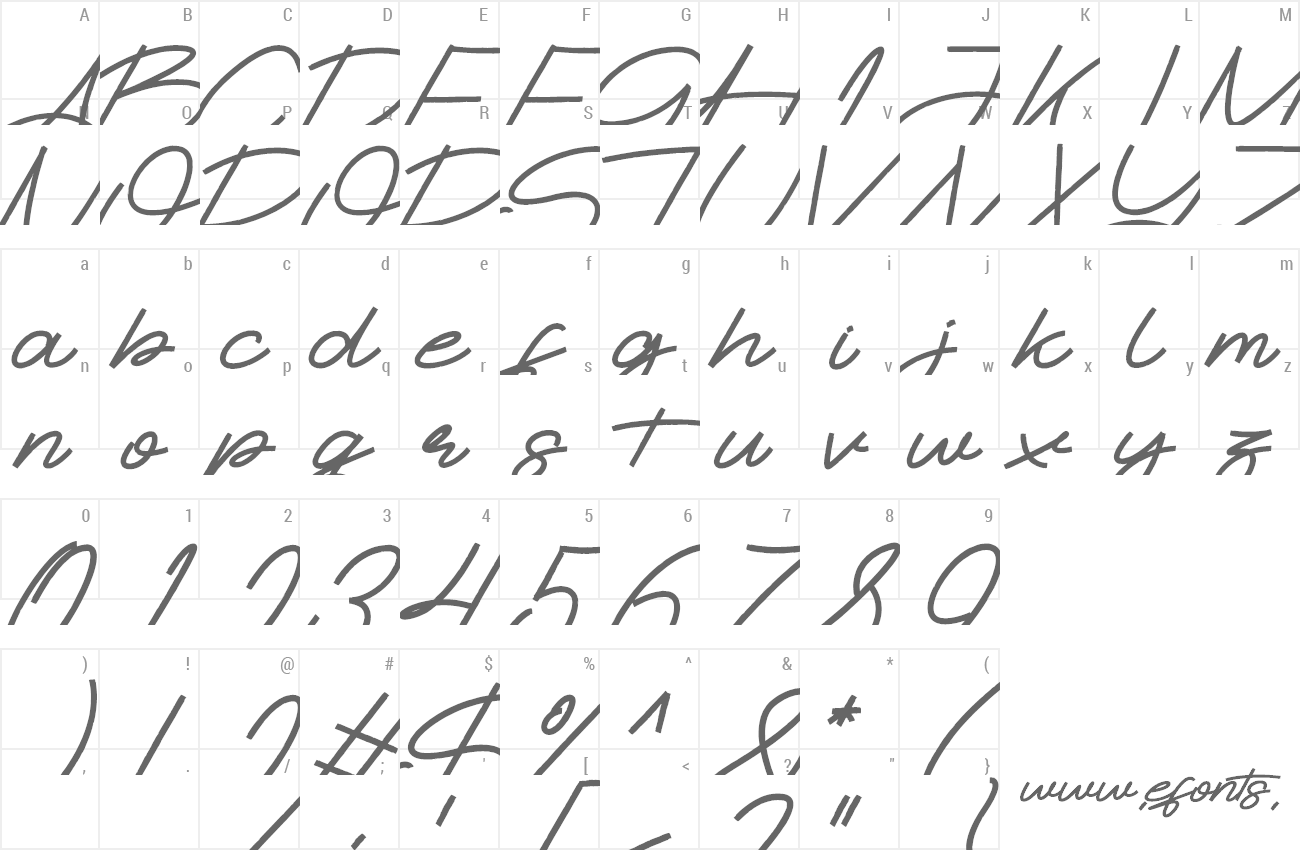 A B C D E F G H I J K L M
A B C D E F G H I J K L M
N O P Q R S T U V W X Y Z
N O P Q R S T U V W X Y Z
a b c d e f g h i j k l m
a b c d e f g h i j k l m
n o p q r s t u v w x y z
n o p q r s t u v w x y z
0 1 2 3 4 5 6 7 8 9
0 1 2 3 4 5 6 7 8 9
) ! @ # $ % ^ & * (
) / ? # $ % ^ & * (
, . / ; ' [ < ? " }
/ ; ' [ < ? " }
www.efonts.